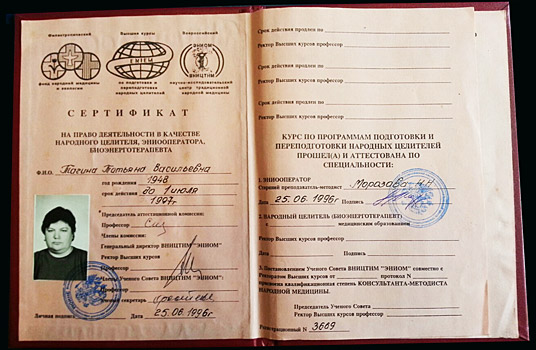 Филантропический
Высшие курсы
Всероссийский
ЭНИОМ
ВНИЦТНМ
фонд народной медицины
и экологии
по подготовке и
переподготовке
народных целителей
научно-исследовательский
центр традиционной
народной медицины
СЕРТИФИКАТ
НА ПРАВО ДЕЯТЕЛЬНОСТИ В КАЧЕСТВЕ
НАРОДНОГО ЦЕЛИТЕЛЯ, ЭНИООПЕРАТОРА,
БИОЭНЕРГОТЕРАПЕВТА
Ф.И.О. Татьяна Васильевна
год рождения 1948
срок действия до 1 июля
1997г.
Председатель аттестационной комиссии:
Профессор
Члены комиссии:
Генеральный директор ВНИЦТНМ "ЭНИОМ"
Ректор Высших курсов
Профессор
Член Ученого Совета ВНИЦТНМ "ЭНИОМ"
Ученый секретарь
Личная подпись Дата 25.06.1996г.
Срок действия продлен по
Ректор Высших курсов профессор
Срок действия продлен по
Ректор Высших курсов профессор
Срок действия продлен по
Ректор Высших курсов профессор
КУРС ПО ПРОГРАММАМ ПОДГОТОВКИ И
ПЕРЕПОДГОТОВКИ НАРОДНЫХ ЦЕЛИТЕЛЕЙ
ПРОШЕЛ(А) И АТТЕСТОВАНА ПО
СПЕЦИАЛЬНОСТИ:
1. ЭНИООПЕРАТОР
Старший преподаватель-методист
Дата 25.06.1996г Подпись
2. НАРОДНЫЙ ЦЕЛИТЕЛЬ (БИОЭНЕРГОТЕРАПЕВТ)
с медицинским образованием
Ректор Высших курсов профессор
Дата Подпись
3. Постановлением Ученого Совета ВНИЦТНМ "ЭНИОМ" совместно с
Ректоратом Высших курсов от протокол №
присвоена квалификационная степень КОНСУЛЬТАНТА-МЕТОДИСТА
НАРОДНОЙ МЕДИЦИНЫ.
Председатель Ученого Совета
Ректор Высших курсов профессор
Регистрационный № 3609